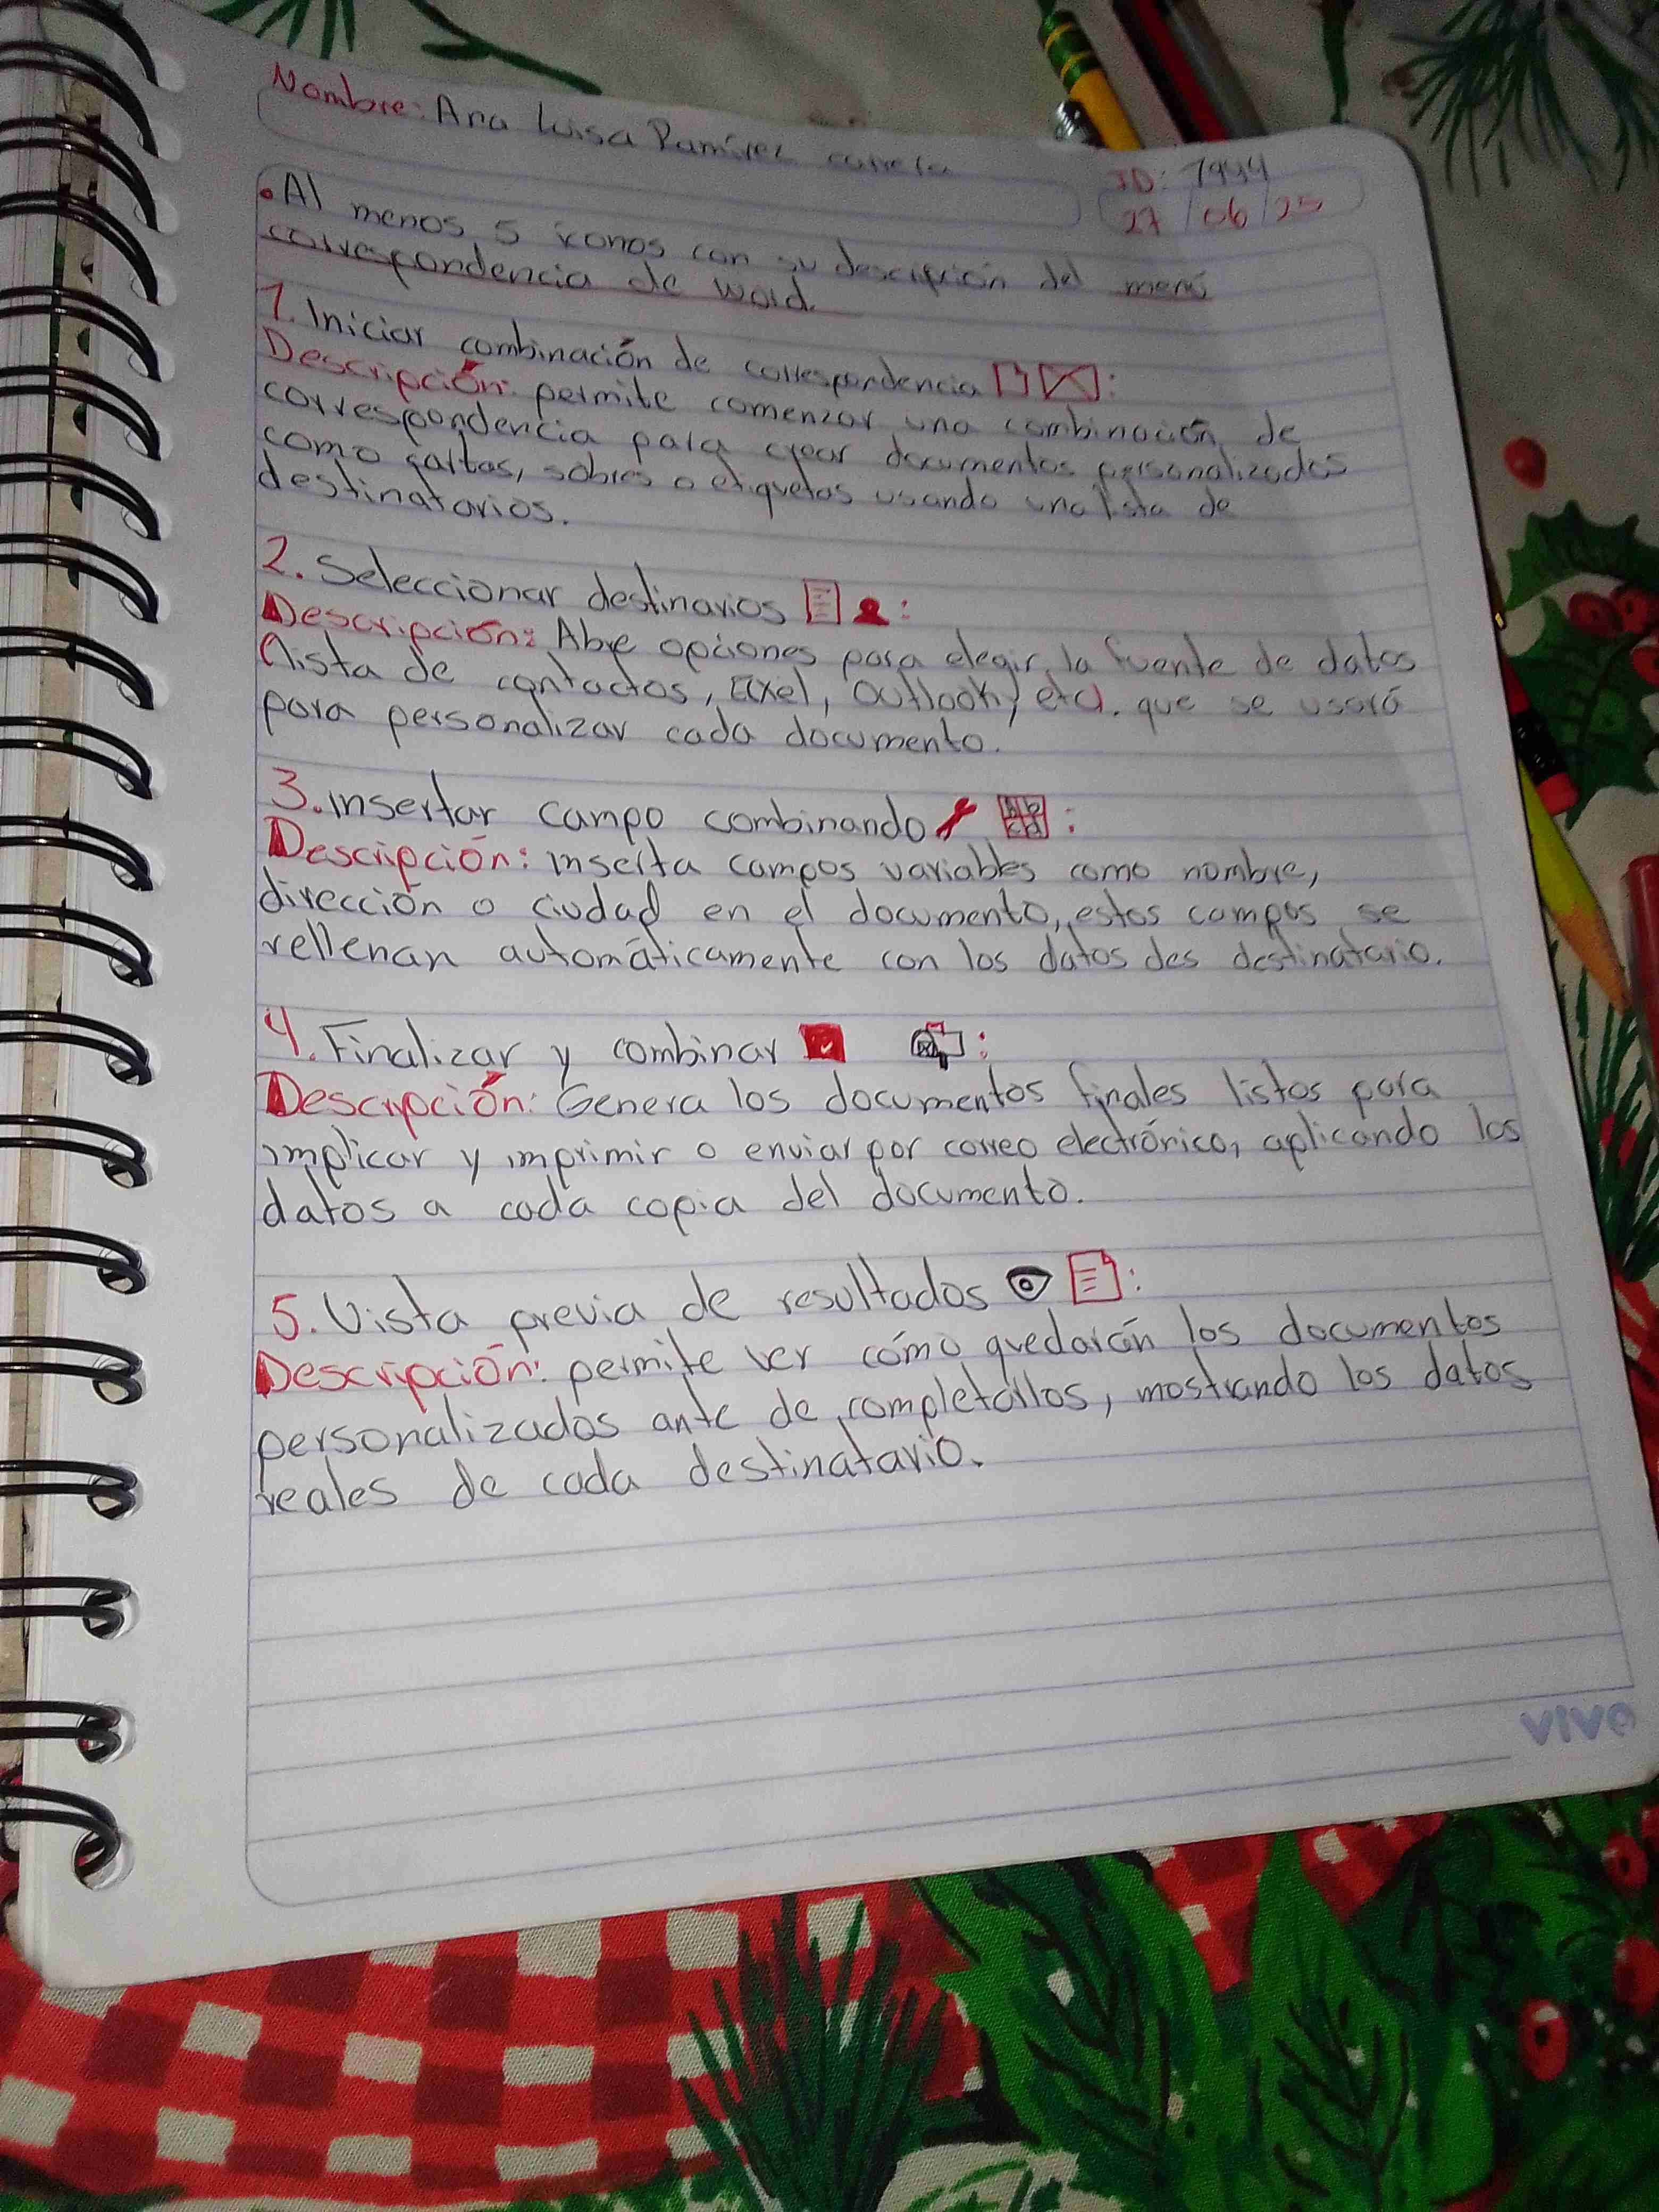 Nombre: Ana Luisa Ramírez
ID: 7944
27/06/25
• Al menos 5 iconos con su descripción del menú
correspondencia de word.
1. Iniciar combinación de correspondencia :
Descripción: permite comenzar una combinación de
correspondencia para crear documentos personalizados
como cartas, sobres o etiquetas usando una lista de
destinatarios.
2. Seleccionar destinarios :
Descripción: Abre opciones para elegir la fuente de datos
(lista de contactos, Exel, Outlook, etc). que se usará
para personalizar cada documento.
3. insertar campo combinando ab cd :
Descripción: inserta campos variables como nombre,
dirección o ciudad en el documento, estos campos se
rellenan automáticamente con los datos des destinatario.
4. Finalizar y combinar :
Descripción: Genera los documentos finales listos para
implicar y imprimir o enviar por correo electrónico, aplicando los
datos a cada copia del documento.
5. Vista previa de resultados :
Descripción: permite ver cómo quedarán los documentos
personalizados ante de completarlos, mostrando los datos
reales de cada destinatario.
VIVO